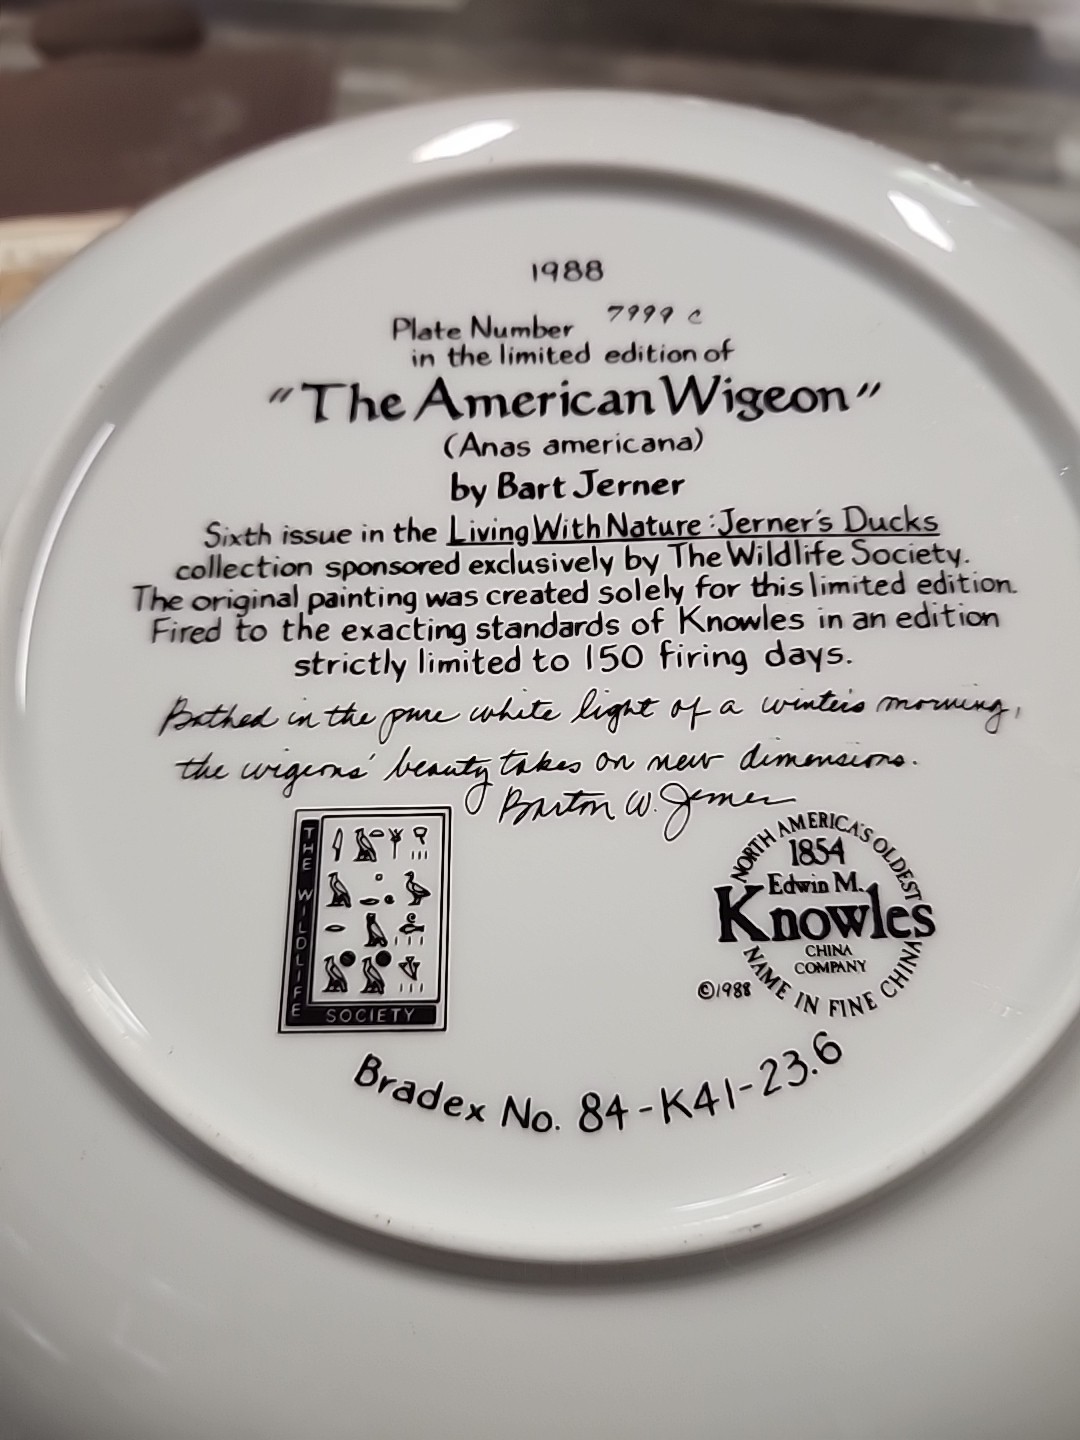 1988
Plate Number 7999 c
in the limited edition of
"The American Wigeon"
(Anas americana)
by Bart Jerner
Sixth issue in the Living With Nature: Jerner's Ducks
collection sponsored exclusively by The Wildlife Society.
The original painting was created solely for this limited edition.
Fired to the exacting standards of Knowles in an edition
strictly limited to 150 firing days.
Bathed in the pure white light of a winter's morning,
the wigeons' beauty takes on new dimensions.
Barton W. Jerner
THE WILDLIFE
SOCIETY
NORTH AMERICA'S OLDEST
1854
Edwin M.
Knowles
CHINA
COMPANY
NAME IN FINE CHINA
©1988
Bradex No. 84-K41-23.6